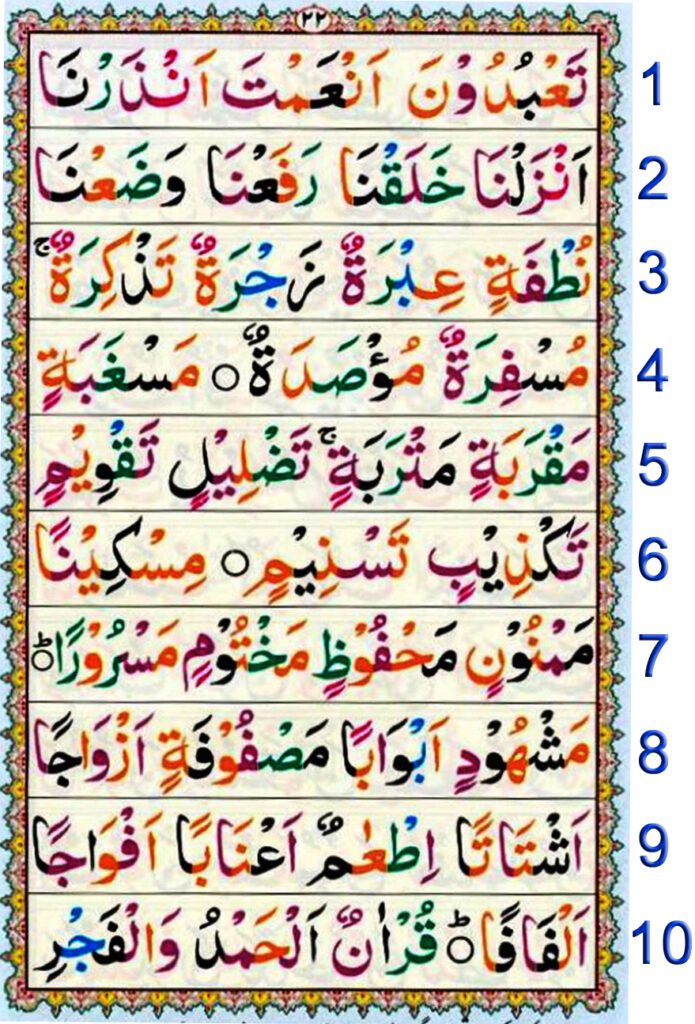 ٢٢
تَعْبُدُوْنَ اَنْعَمْتَ اَنْذَرْنَا 1
اَنْزَلْنَا خَلَقْنَا رَفَعْنَا وَضَعْنَا 2
نُطْفَةٍ عِبْرَةٌ زَجْرَةٌ تَذْكِرَةٌ ۚ 3
مُسْفِرَةٌ مُؤْصَدَةٌ ○ مَسْغَبَةٍ 4
مَقْرَبَةٍ مَتْرَبَةٍ ۚ تَضْلِيْلٍ تَقْوِيْمٍ 5
تَكْذِيْبٍ تَسْنِيْمٍ ○ مِسْكِيْنًا 6
مَمْنُوْنٍ مَحْفُوْظٍ مَخْتُوْمٍ مَسْرُوْرًا ○ؕ 7
مَشْهُوْدٍ اَبْوَابًا مَصْفُوْفَةٍ اَزْوَاجًا 8
اَشْتَاتًا اِطْعٰمٌ اَعْنَابًا اَفْوَاجًا 9
اَلْفَافًا ○ؕ قُرْاٰنٌ اَلْحَمْدُ وَالْفَجْرِ 10